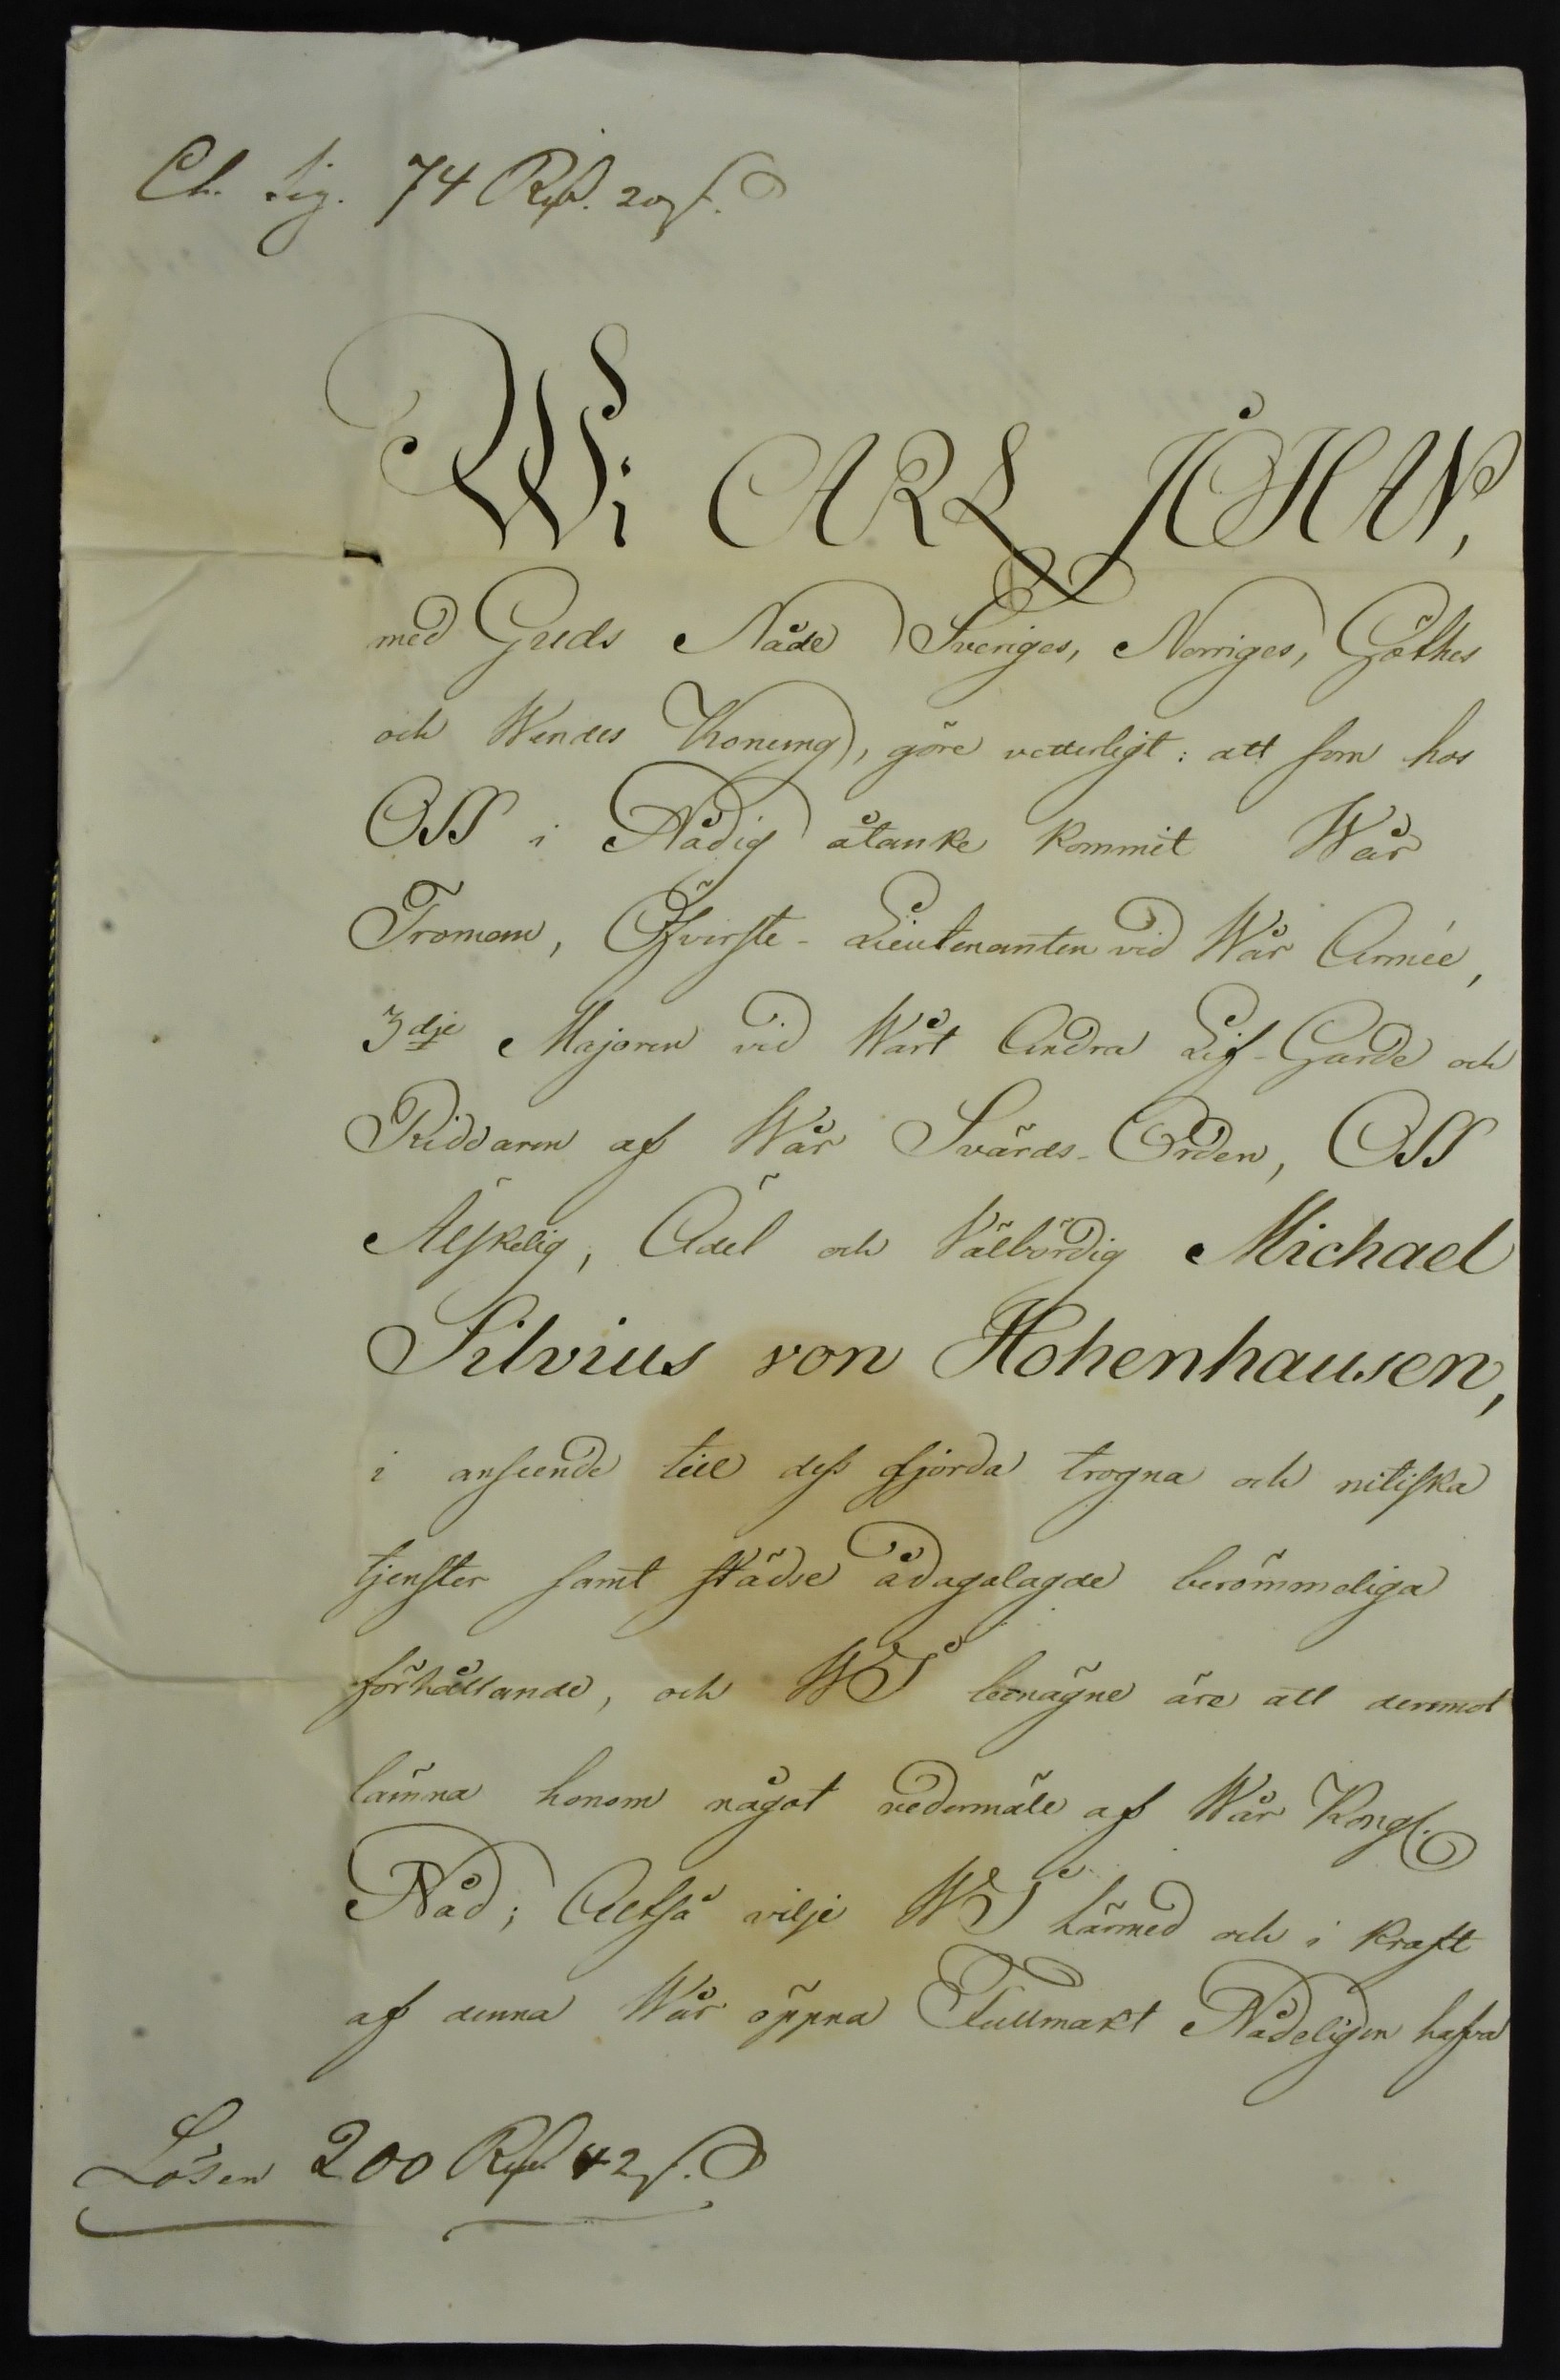 Ch. Sig. 74 Rdr. 20 s.
Wi CARL JOHAN,
med Guds Nåde Sveriges, Norriges, Göthes
och Wendes Konung, göre vetterligt: att som hos
OSS i Nådig åtanke kommit Wår
Troman, Öfverste-Lieutenanten vid Wår Armée,
3dje Majoren vid Wårt Andra Lif-Garde och
Riddaren af Wår Svärds-Orden, OSS
Älskelig, Ädel och Välbördig Michael
Silvius von Hohenhausen,
i anseende till dess gjorda trogna och nitiska
tjenster samt städse ådagalagde berömmeliga
förhållande, och WJ benägne äre att deremot
lämna honom något vedermäle af Wår Kongl.
Nåd; Altså vilje WJ härmed och i kraft
af denna Wår öppna Fullmakt Nådeligen hafva
Lösen 200 Rdr 42 s.